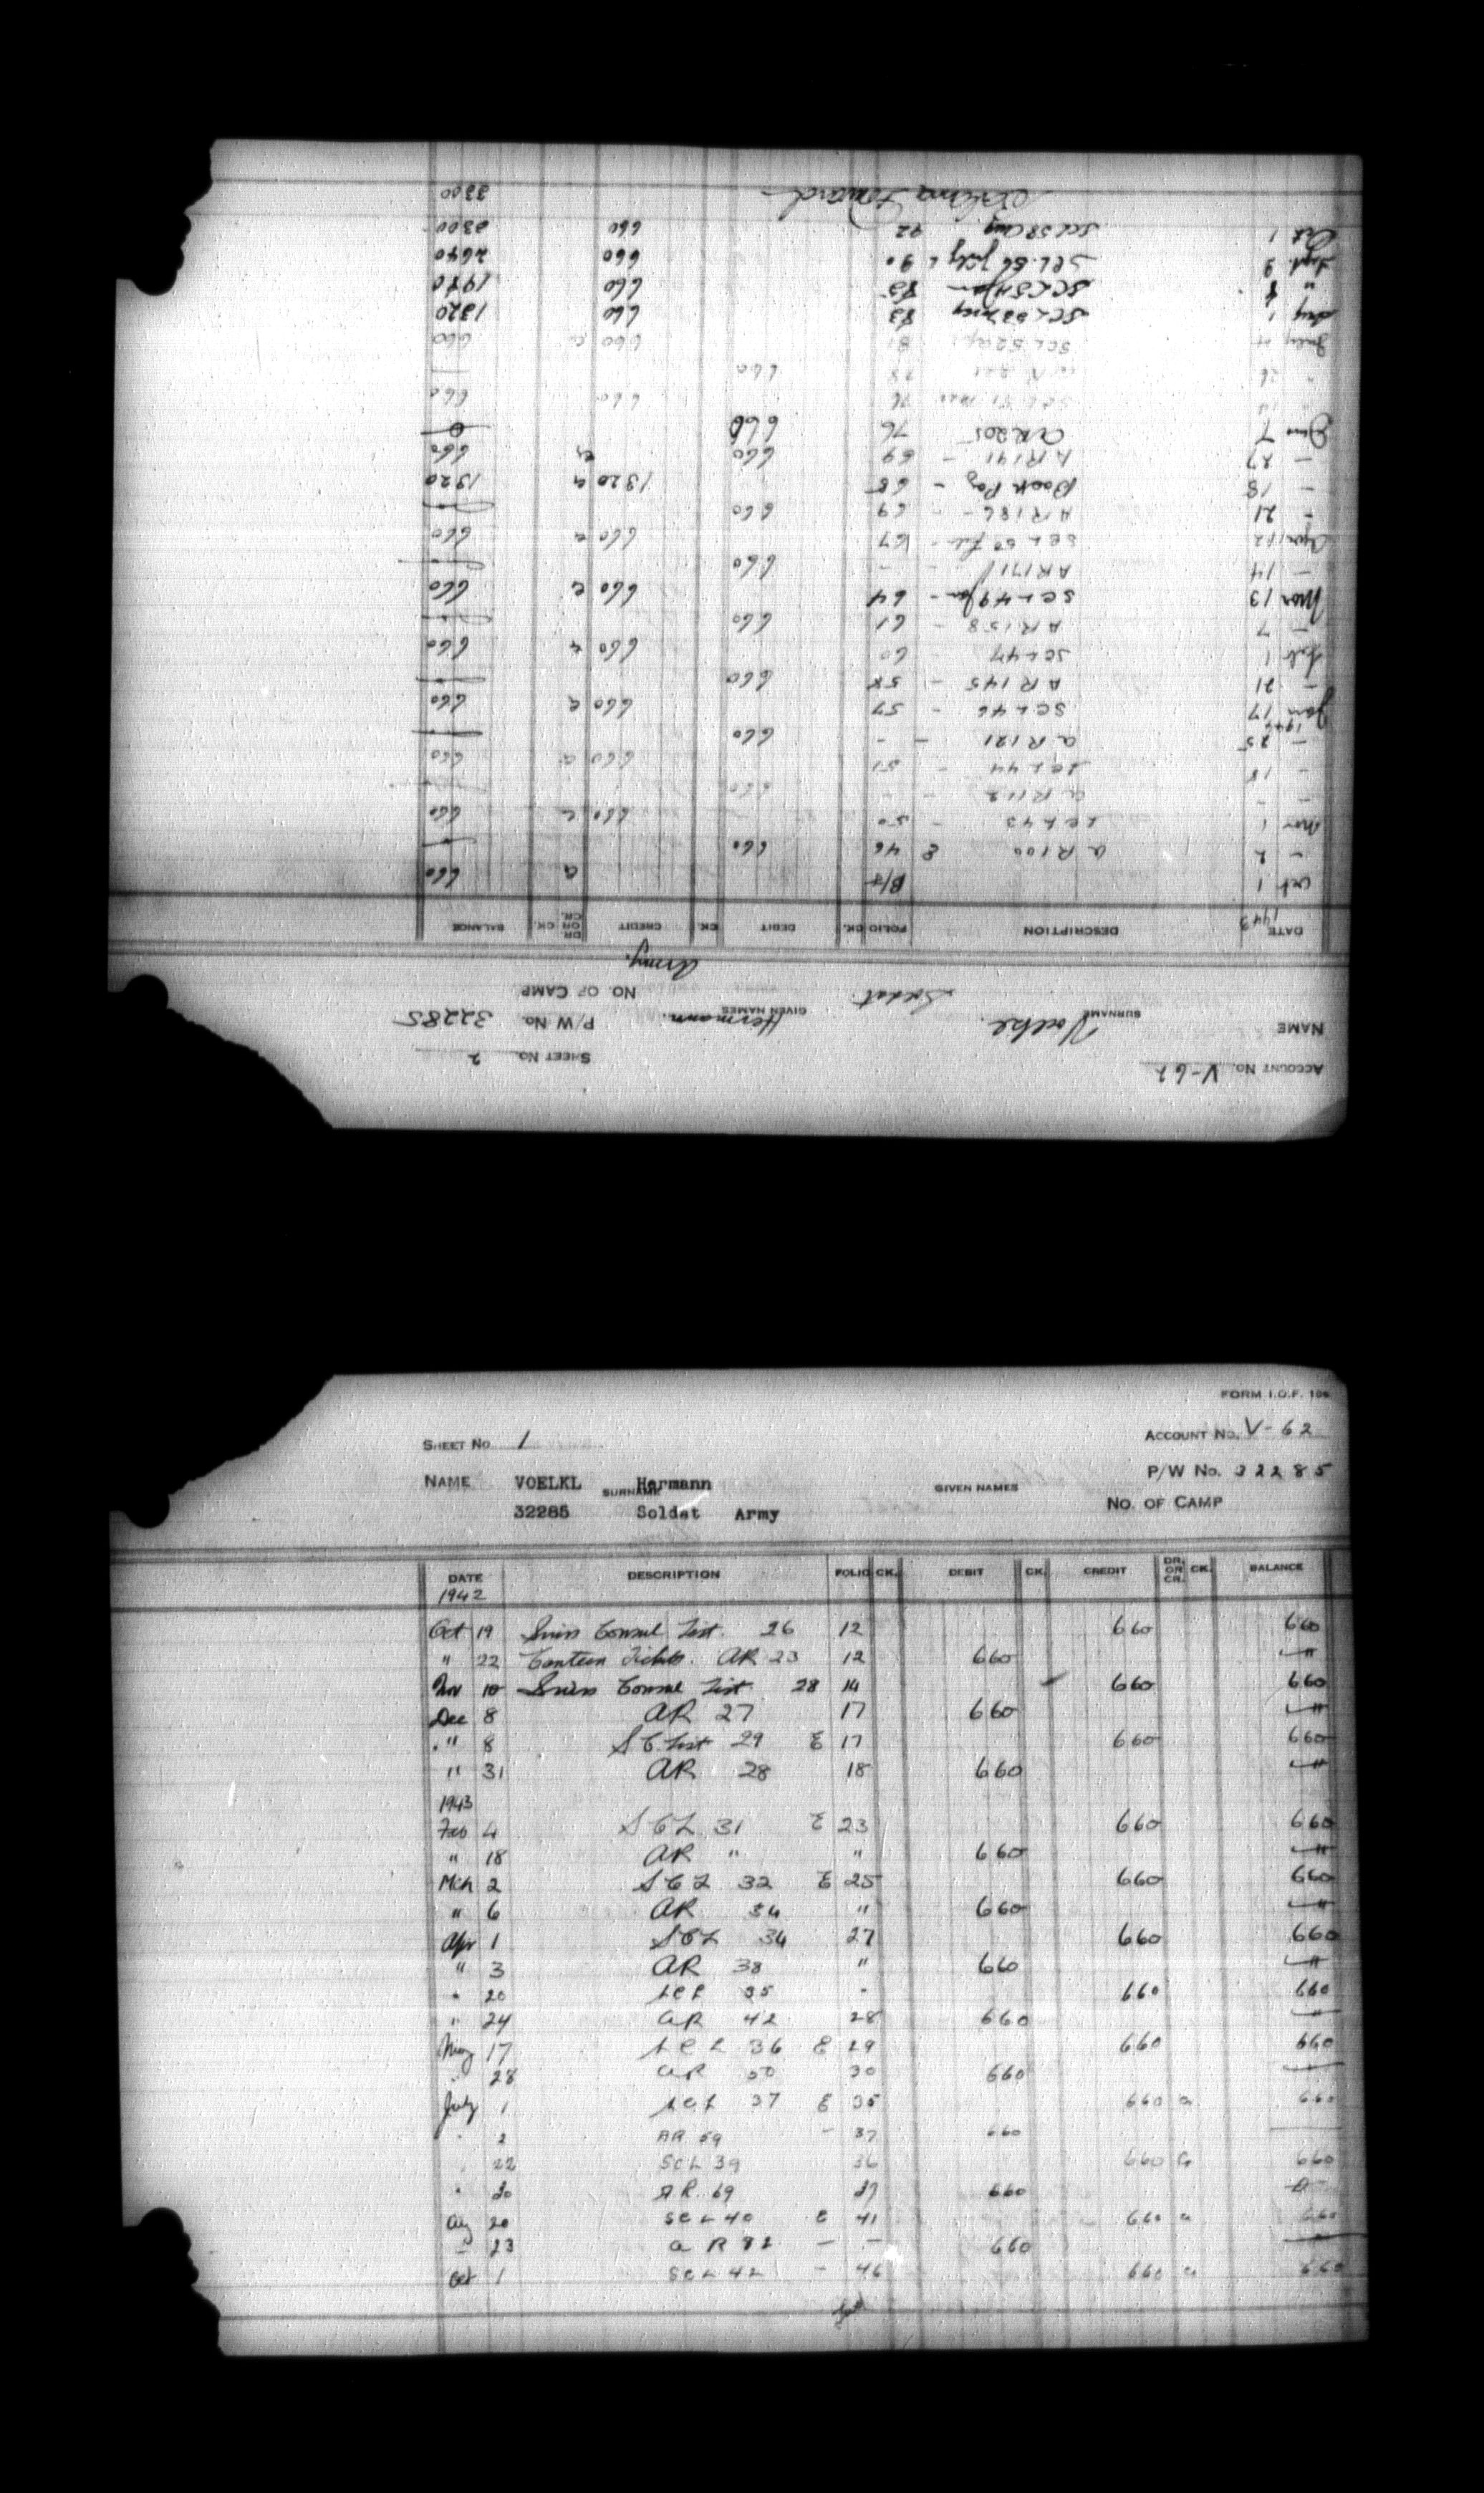 FORM I.O.F. 106
SHEET NO 1 ACCOUNT NO. V-62
NAME VOELKL Hermann SURNAME GIVEN NAMES P/W NO. 32285
32285 Soldat Army NO. OF CAMP
DATE DESCRIPTION FOLIO CK. DEBIT CK. CREDIT DR. OR CR. CK. BALANCE
1942
Oct 19 Swiss Consul List. 26 12 660 660
" 22 Canteen Tickets. AR 23 12 660 —"
Nov 10 Swiss Consul List 28 14 660 660
Dec 8 AR 27 17 660 —"
" 8 S C. List 29 E 17 660 660
" 31 AR 28 18 660 —"
1943
Feb 4 S C L 31 E 23 660 660
" 18 AR " " 660 —"
Mch 2 S C L 32 E 25 660 660
" 6 AR 34 " 660 —"
Apr 1 S C L 34 27 660 660
" 3 AR 38 " 660 —"
" 20 SCL 35 " 660 660
" 24 AR 42 28 660 —
May 17 S C L 36 E 29 660 660
" 28 AR 50 30 660 —
July 1 SCL 37 E 35 660 a 660
" 2 AR 59 — 37 660 —
" 22 SCL 39 36 660 a 660
" 30 AR. 69 37 660
Aug 20 SCL 40 E 41 660 a 660
— 23 a R 82 — — 660 —
Oct 1 SCL 42 — 46 660 a 660
ACCOUNT NO. V-62 SHEET NO. 2
NAME Voelkl. SURNAME Soldat. Hermann. GIVEN NAMES P/W NO. 32285
Army. NO. OF CAMP
DATE DESCRIPTION FOLIO CK. DEBIT CK. CREDIT DR. OR CR. CK. BALANCE
1943
Oct 1 B/F a 660
— 2 a R 100 E 46 660 —
Nov 1 SCL 43 — 50 660 a 660
— — a R 112 — — 660 —
— 18 SCL 44 — 51 660 a 660
— 25 a R 121 — — 660 —
1944
Jan 17 SCL 46 — 57 660 a 660
— 21 AR 145 — 58 660 —
Feb 1 SCL 47 60 660 a 660
— 7 AR 158 — 61 660 —
Mar 13 SCL 49 Jan — 64 660 a 660
— 14 AR 171 — — 660 —
Apr 12 SCL 50 Feb — 67 660 a 660
— 21 AR 186 — — 69 660 —
— 18 Book Pay — 68 1320 a 1320
— 27 AR 191 — 69 660 660
June 7 AR 205 76 660 0
76 660 660
" 26 78 660
July 4 SCL 52 Apr 81 660 a 660
Aug 1 SCL 53 May 83 660 1320
" 4 SCL 54 Jun 85 660 1980
Sept 9 SCL 56 July 90 660 2640
Oct 1 SCL 58 Aug 92 660 3300
Balance Forward 3300